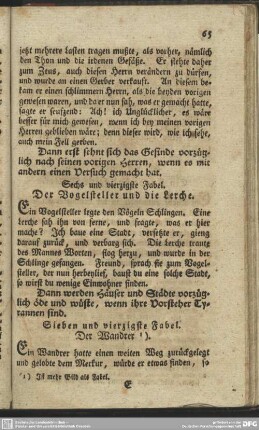 65
jetzt mehrere Lasten tragen mußte, als vorher, nämlich
den Thon und die irdenen Gefäße. Er flehte daher
zum Zeus, auch diesen Herrn verändern zu dürfen,
und wurde an einen Gerber verkauft. An diesem be-
kam er einen schlimmern Herrn, als die beyden vorigen
gewesen waren, und da er nun sah, was er gemacht hatte,
sagte er seufzend: Ach! ich Unglücklicher, es wäre
besser für mich gewesen, wenn ich bey meinen vorigen
Herren geblieben wäre; denn dieser wird, wie ich sehe,
auch mein Fell gerben.
Dann erst sehnt sich das Gesinde vorzüg-
lich nach seinen vorigen Herren, wenn es mit
andern einen Versuch gemacht hat.
Sechs und vierzigste Fabel.
Der Vogelsteller und die Lerche.
Ein Vogelsteller legte den Vögeln Schlingen. Eine
Lerche sah ihn von ferne, und fragte, was er hier
mache? Ich baue eine Stadt, versetzte er, gieng
darauf zurück, und verbarg sich. Die Lerche traute
des Mannes Worten, flog herzu, und wurde in der
Schlinge gefangen. Freund, sprach sie zum Vogel-
steller, der nun herbeylief, baust du eine solche Stadt,
so wirst du wenige Einwohner finden.
Dann werden Häuser und Städte vorzüg-
lich öde und wüste, wenn ihre Vorsteher Ty-
rannen sind.
Sieben und vierzigste Fabel.
Der Wandrer ¹).
Ein Wandrer hatte einen weiten Weg zurückgelegt
und gelobte dem Merkur, würde er etwas finden, so
¹) Ist mehr Witz als Fabel.
E